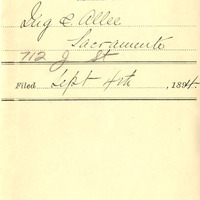 Ing & Allee
Sacramento
712 J St
Filed Sept 4th, 1894.